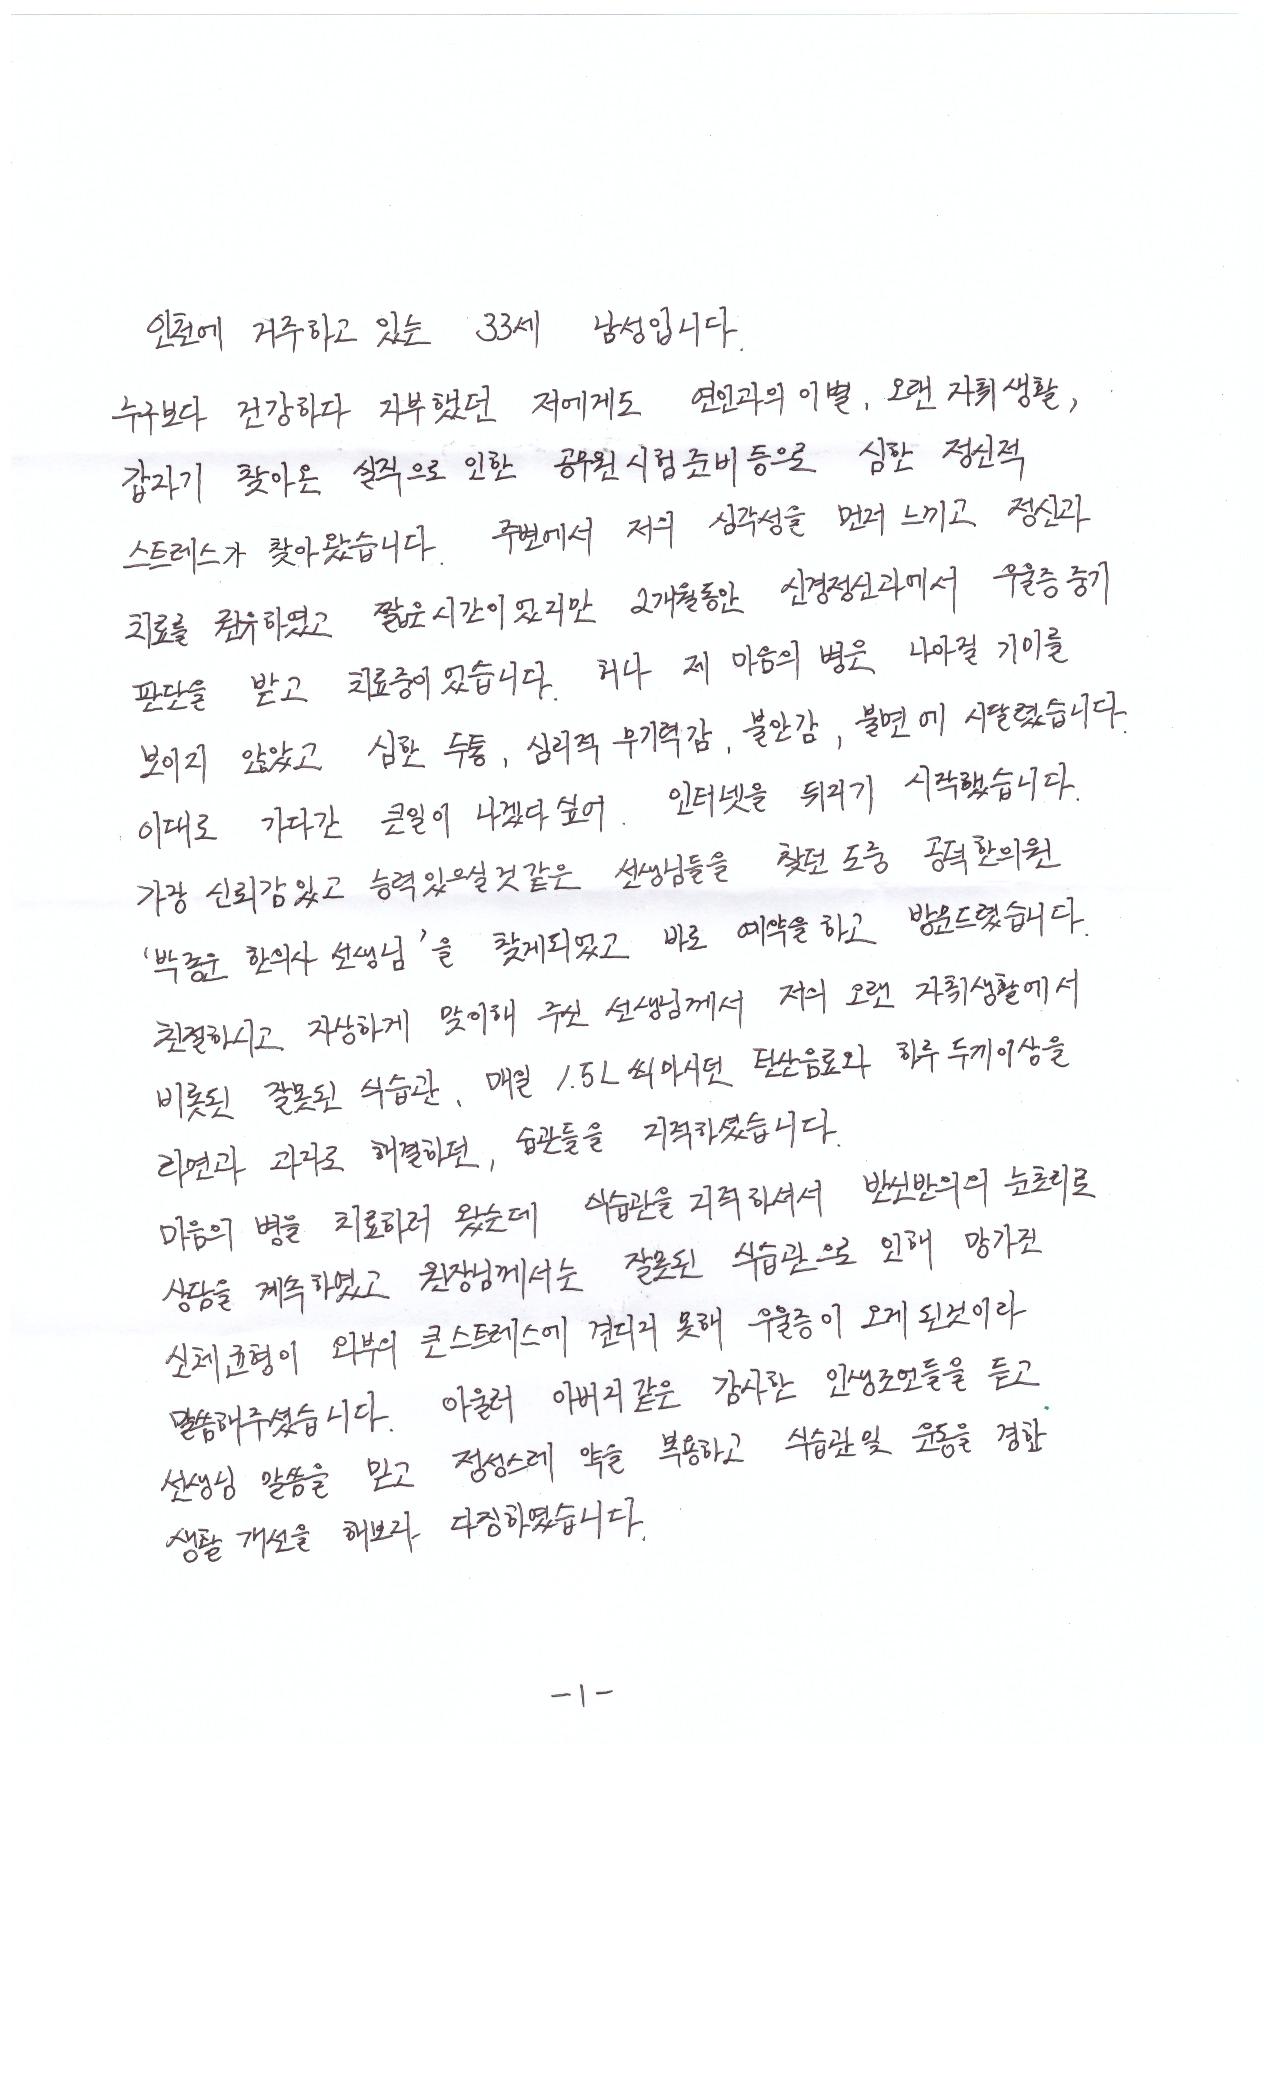 인천에 거주하고 있는 33세 남성입니다.
누구보다 건강하다 자부했던 저에게도 연인과의 이별, 오랜 자취생활,
갑자기 찾아온 실직으로 인한 공무원시험준비등으로 심한 정신적
스트레스가 찾아왔습니다. 주변에서 저의 심각성을 먼저 느끼고 정신과
치료를 권유하였고 짧은시간이었지만 2개월동안 신경정신과에서 우울증중기
판단을 받고 치료중이었습니다. 허나 제 마음의 병은 나아질 기미를
보이지 않았고 심한 두통, 심리적 무기력감, 불안감, 불면에 시달렸습니다.
이대로 가다간 큰일이 나겠다싶어. 인터넷을 뒤지기 시작했습니다.
가장 신뢰감있고 능력있으실것같은 선생님들을 찾던 도중 공덕한의원
'박종운 한의사 선생님'을 찾게되었고 바로 예약을하고 방문드렸습니다.
친절하시고 자상하게 맞이해 주신 선생님께서 저의 오랜 자취생활에서
비롯된 잘못된 식습관, 매일 1.5L씩마시던 탄산음료와 하루두끼이상을
라면과 과자로 해결하던, 습관들을 지적하셨습니다.
마음의 병을 치료하러 왔는데 식습관을 지적하셔서 반신반의의 눈초리로
상담을 계속하였고 원장님께서는 잘못된 식습관으로 인해 망가진
신체균형이 외부의 큰스트레스에 견디지 못해 우울증이 오게된것이라
말씀해주셨습니다. 아울러 아버지같은 감사한 인생조언들을 듣고
선생님 말씀을 믿고 정성스레 약을 복용하고 식습관및 운동을 겸한
생활개선을 해보라 다짐하였습니다.
-1-